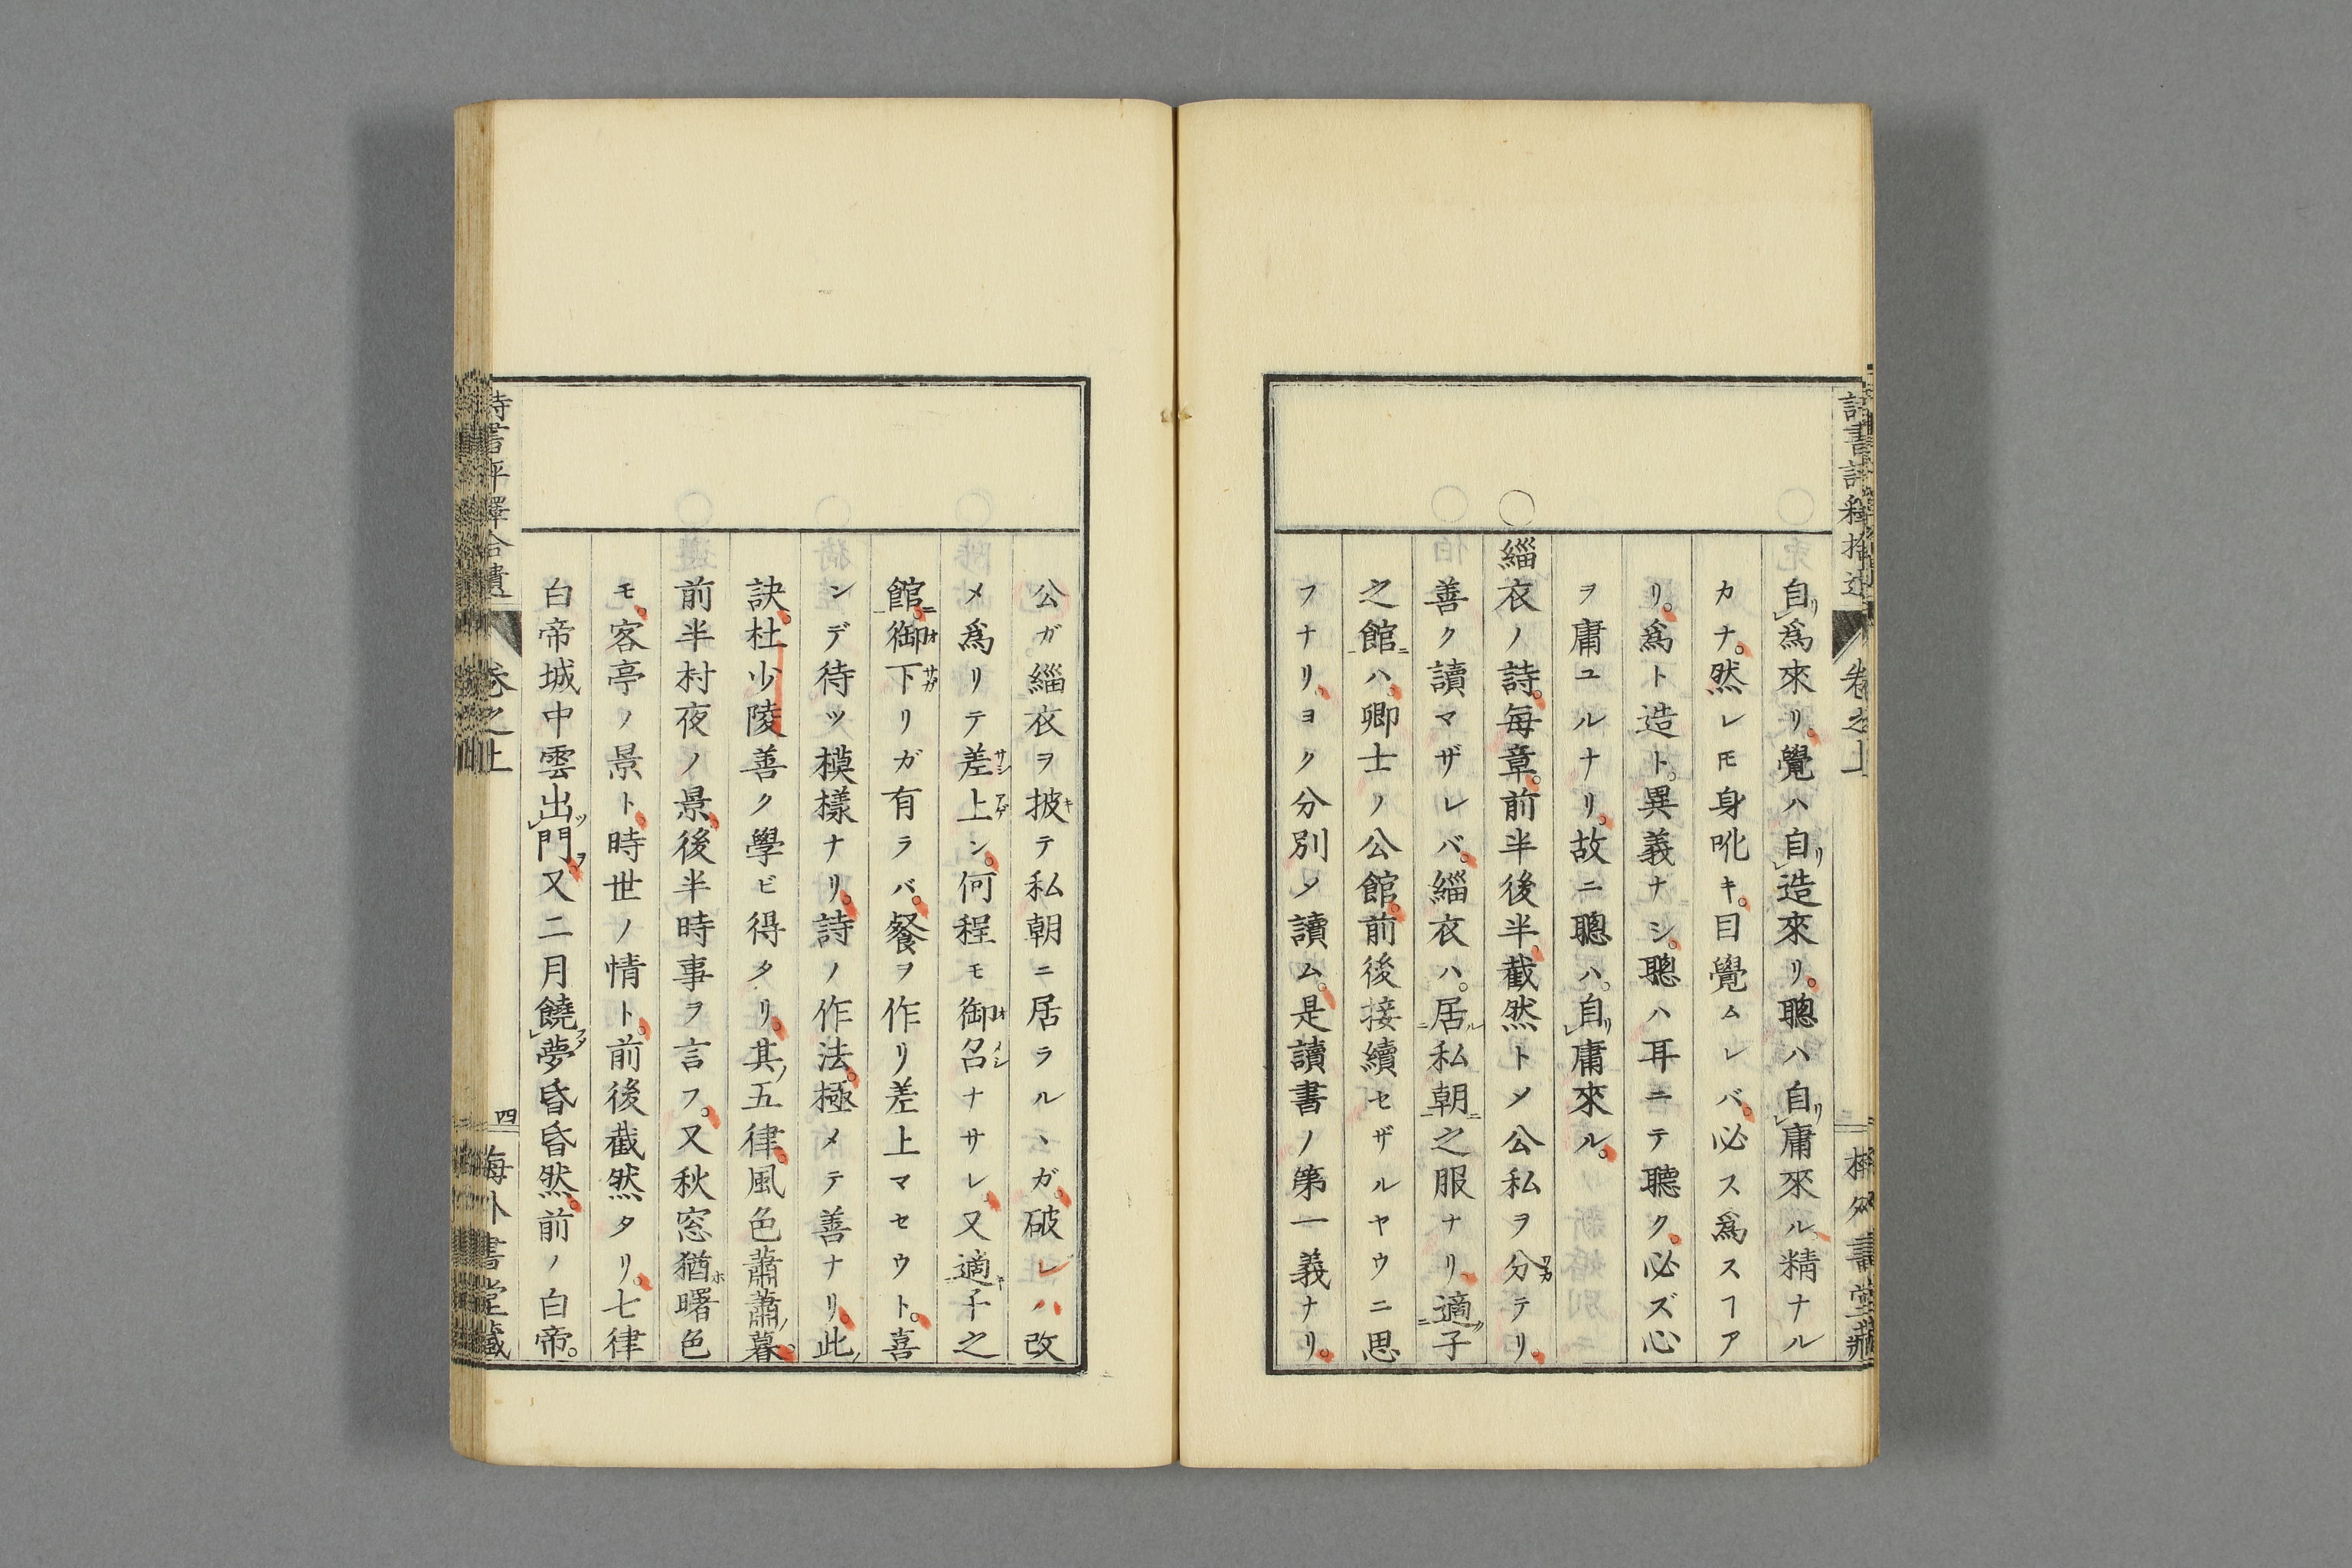 自リ爲來リ。覺ハ自リ造來リ。聰ハ自リ庸來ル精ナル
カナ。然レ𪜈身吪キ。目覺ムレバ。必ス爲スヿア
リ。爲ト造ト。異義ナシ。聰ハ耳ニテ聽ク。必ズ心
ヲ庸ユルナリ。故ニ聰ハ。自リ庸來ル。
○緇衣ノ詩。每章。前半後半。截然トメ公私ヲ分ワカテリ。
善ク讀マザレバ。緇衣ハ。居ル私朝ニ之服ナリ。適ク子
之館ニハ。卿士ノ公館。前後接續セザルヤウニ思
フナリ。ヨク分別メ讀ム。是讀書ノ第一義ナリ。
公ガ緇衣ヲ披キテ私朝ニ居ラルヽガ。破レハ改
メ爲リテ差サシ上アゲン。何程モ御オ召メシナサレ。又適キ子之
館ニ。御オ下サガリガ有ラバ。餐ヲ作リ差上マセウト。喜
ンデ待ツ模樣ナリ。詩ノ作法。極メテ善ナリ。此ノ
訣。杜少陵善ク學ビ得タリ。其ノ五律。風色蕭蕭暮。
前半村夜ノ景。後半時事ヲ言フ。又秋窓猶ホ曙色
モ。客亭ノ景ト。時世ノ情ト。前後截然タリ。七律
白帝城中雲出ツ門ヲ。又二月饒フタ夢昏昏然。前ノ白帝。
卷之上
四
海外書堂藏